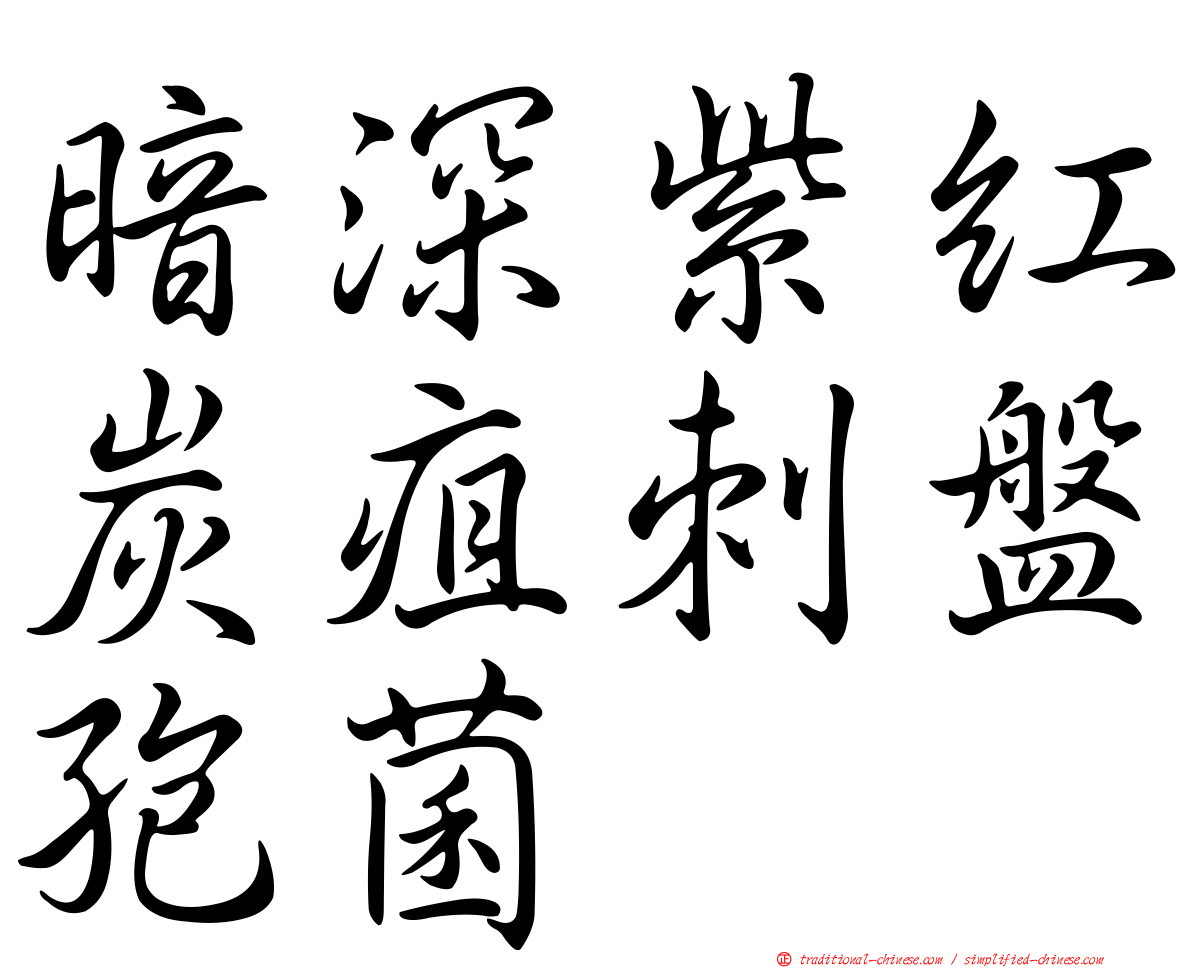 暗深紫紅
炭疽刺盤
孢菌
㊣ traditional-chinese.com / simplified-chinese.com